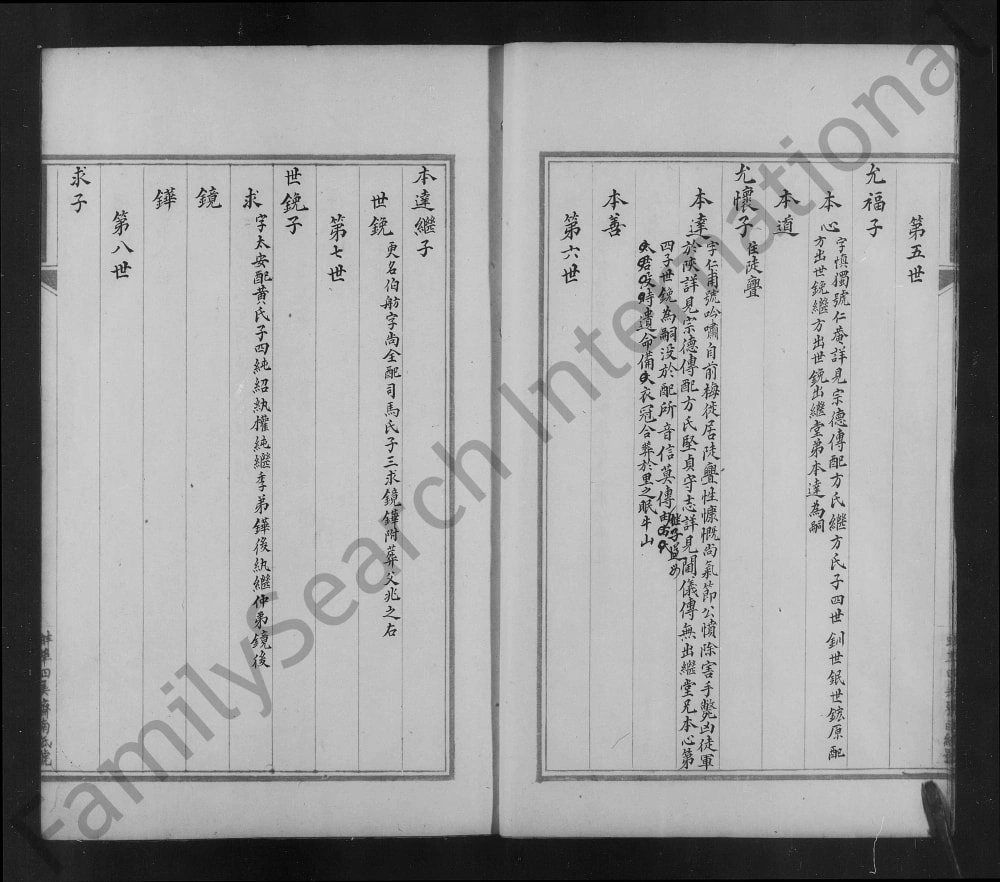 第五世
允福子
本心 字慎獨號仁菴詳見宗德傳配方氏繼方氏子四世釧世鈱世鋐原配
方出世鋔繼方出世鋔出繼堂弟本達為嗣
本道
允懷子 住陡亹
本達 字仁甫號吟嘯自前梅徙居陡亹性慷慨尚氣節公憤除害手斃凶徒軍
於陝詳見宗德傳配方氏堅貞守志詳見閫儀傳無出繼堂兄本心第
四子世鋔為嗣没於配所音信莫傳
時遺命備衣冠合葬於里之眠牛山
本善
第六世
本達繼子
世鋔 更名伯舫字尚全配司馬氏子三求鏡鏵附葬父兆之右
第七世
世鋔子
求 字太安配黃氏子四純紹紈權純繼季弟鏵後紈繼仲弟鏡後
鏡
鏵
第八世
求子
FamilySearch International